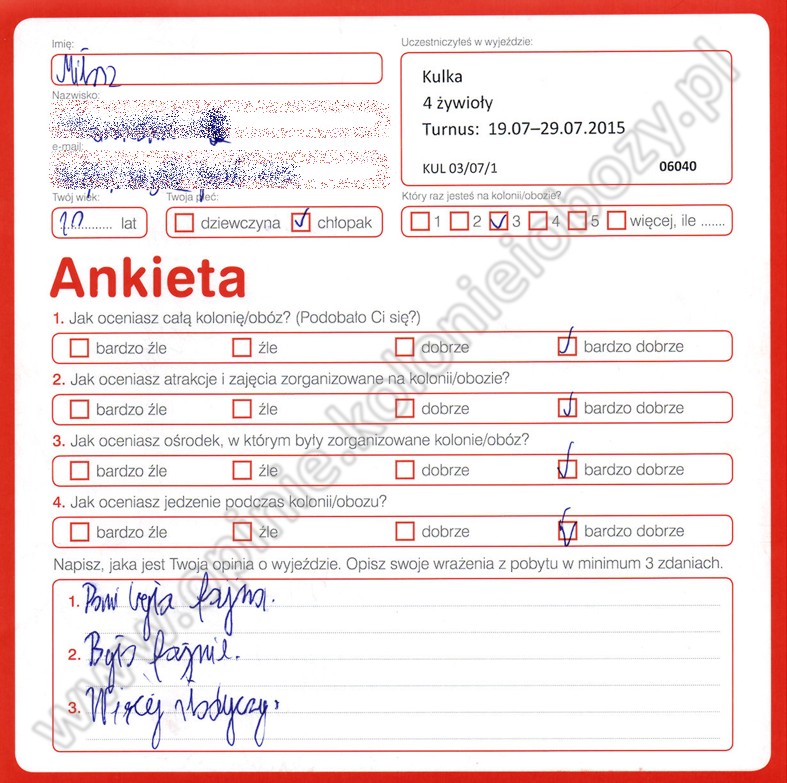 Imię:
Miłosz
Uczestniczyłeś w wyjeździe:
Kulka
4 żywioły
Turnus: 19.07–29.07.2015
KUL 03/07/1 06040
Nazwisko:
e-mail:
Twój wiek:
10 lat
Twoja płeć:
dziewczyna chłopak
Który raz jesteś na kolonii/obozie?
1 2 3 4 5 więcej, ile .......
Ankieta
1. Jak oceniasz całą kolonię/obóz? (Podobało Ci się?)
bardzo źle źle dobrze bardzo dobrze
2. Jak oceniasz atrakcje i zajęcia zorganizowane na kolonii/obozie?
bardzo źle źle dobrze bardzo dobrze
3. Jak oceniasz ośrodek, w którym były zorganizowane kolonie/obóz?
bardzo źle źle dobrze bardzo dobrze
4. Jak oceniasz jedzenie podczas kolonii/obozu?
bardzo źle źle dobrze bardzo dobrze
Napisz, jaka jest Twoja opinia o wyjeździe. Opisz swoje wrażenia z pobytu w minimum 3 zdaniach.
1. Pani była fajna.
2. Było fajnie.
3. Więcej słodyczy.
www.opinie.kolonieiobozy.pl